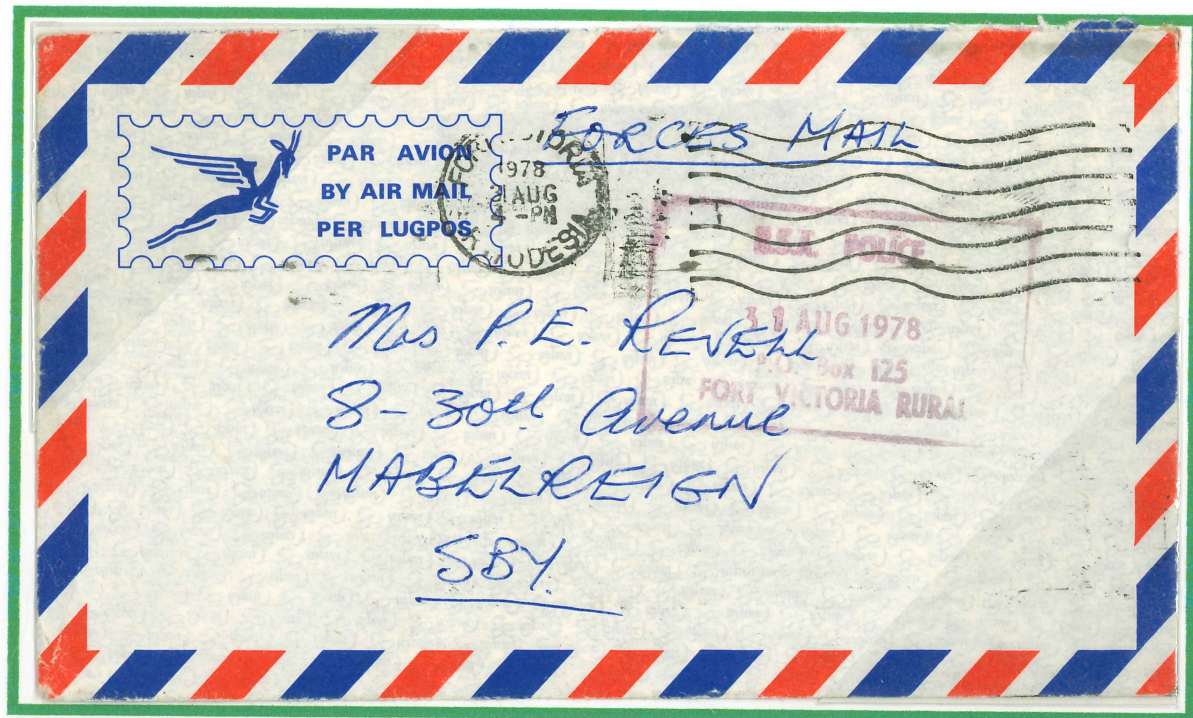 PAR AVION
BY AIR MAIL
PER LUGPOS
FORT VICTORIA
1978
31 AUG
-PM
RHODESIA
FORCES MAIL
B.S.A. POLICE
31 AUG 1978
P.O. Box 125
FORT VICTORIA RURAL
Mrs P.E. REVELL
8-30th Avenue
MABELREIGN
SBY.